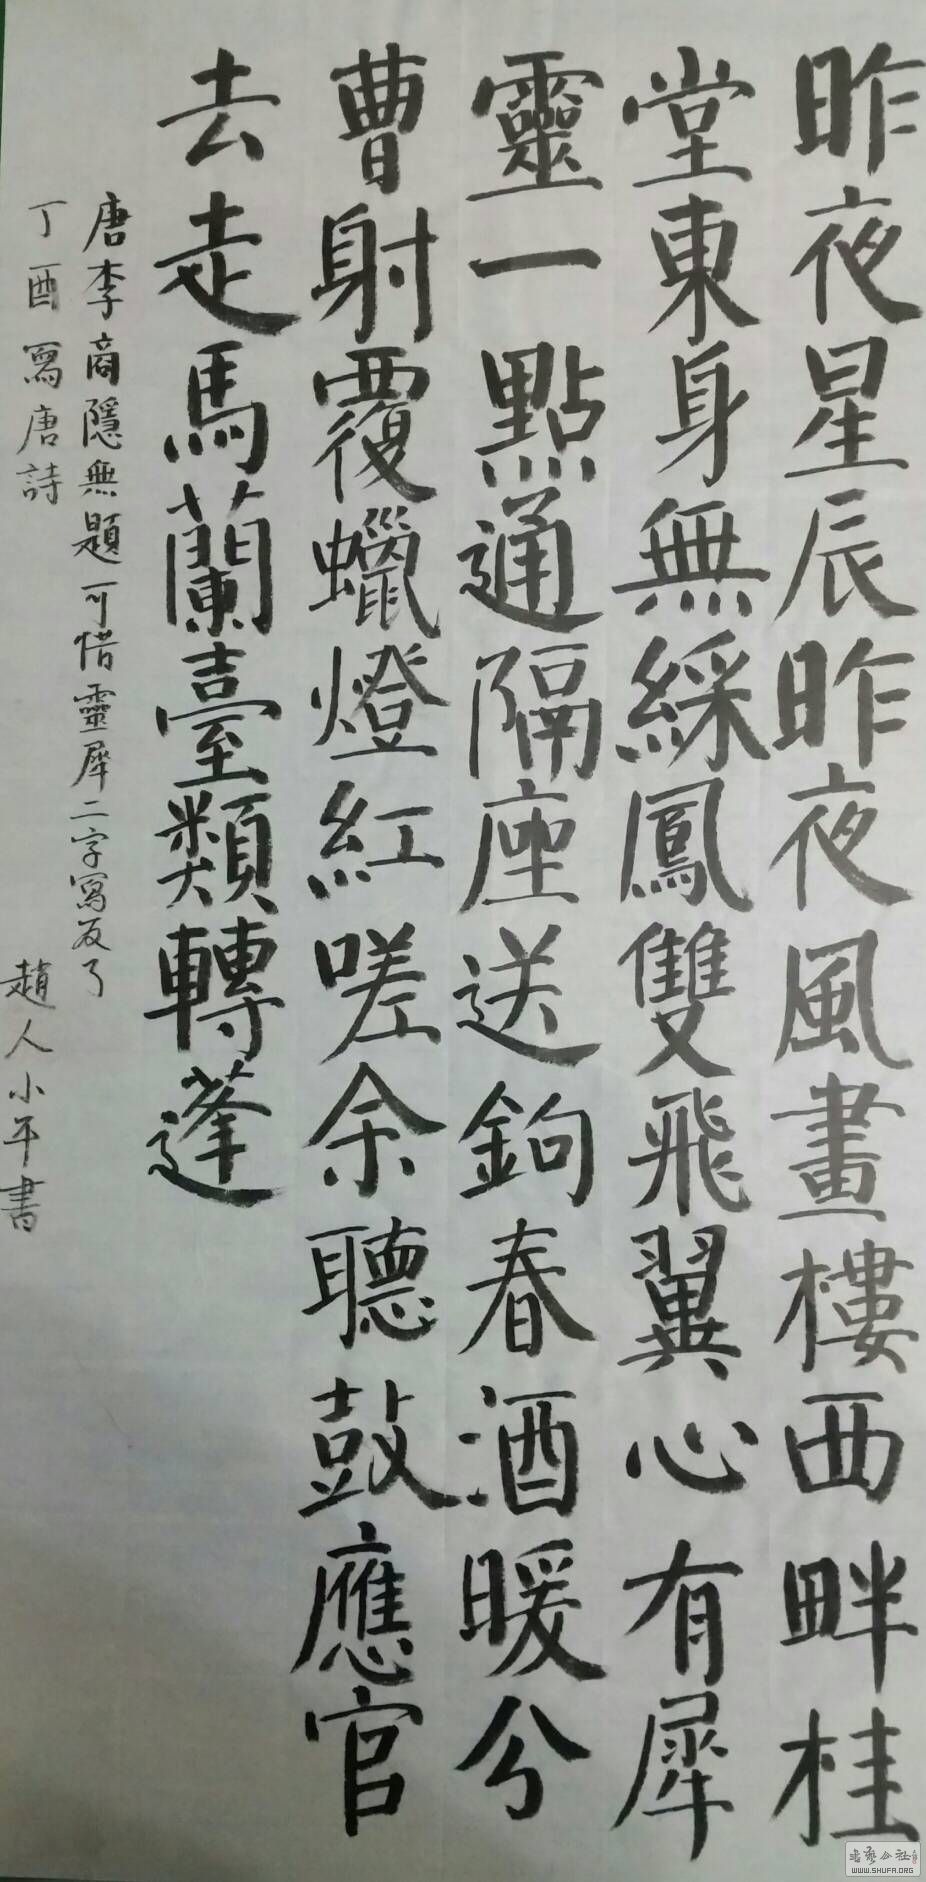 昨夜星辰昨夜風畫樓西畔桂
堂東身無綵鳳雙飛翼心有犀
靈一點通隔座送鉤春酒暖兮
曹射覆蠟燈紅嗟余聽鼓應官
去走馬蘭臺類轉蓬
唐李商隱無題可惜靈犀二字寫反了
丁酉寫唐詩
趙人小平書
书艺公社
WWW.SHUFA.ORG